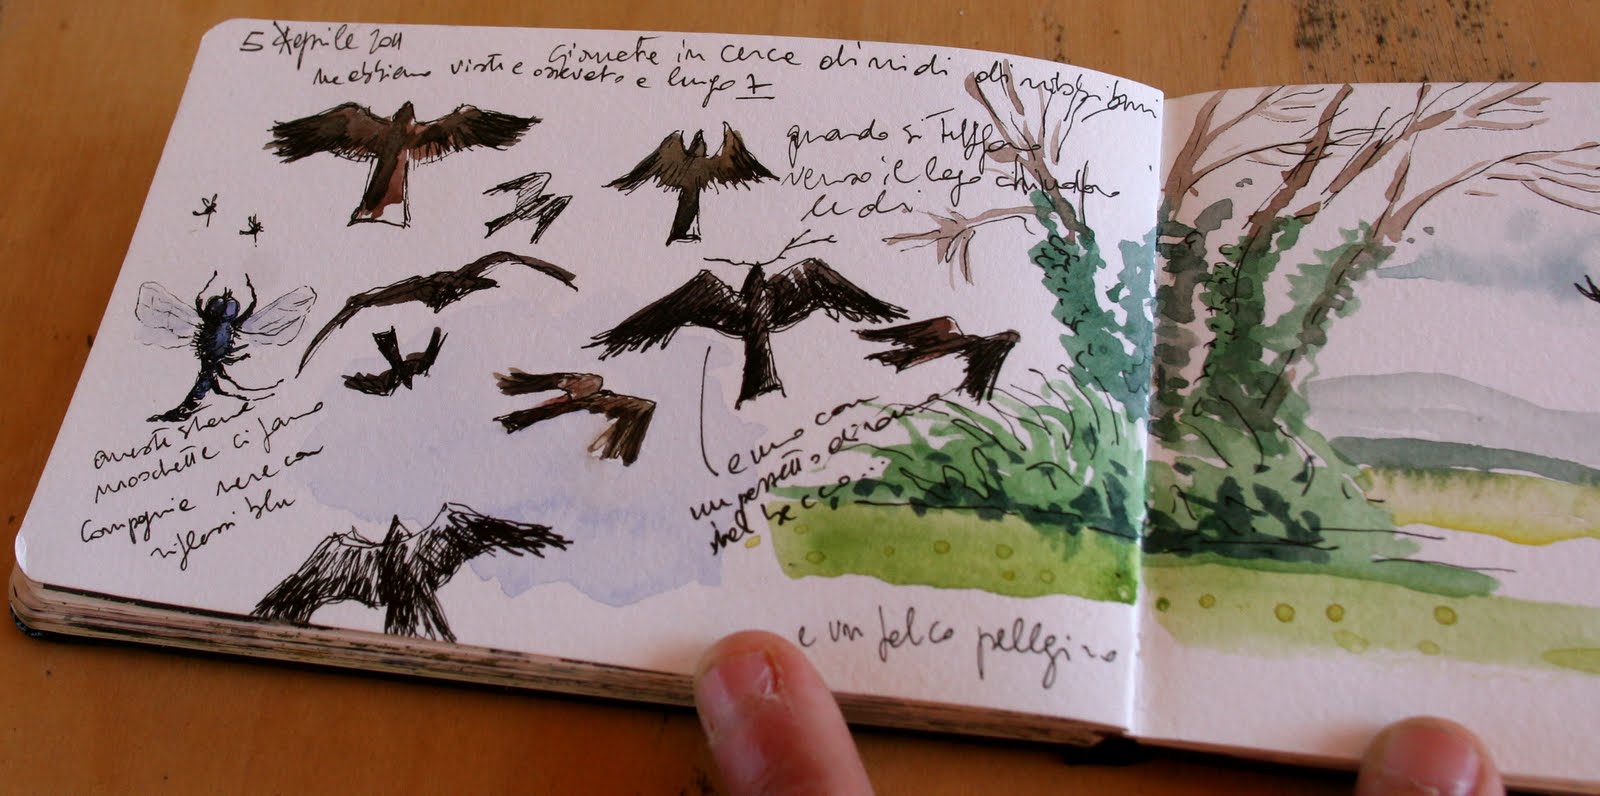 5 Aprile 2011
Giornata in cerca di nidi di nibbi bruni
ne abbiamo visti e osservati a lungo 7
quando si tuffano
verso il lago chiudono
le ali
queste strane
moschette ci fanno
compagnia nere con
riflessi blu
e uno con
un pezzetto di ramo
nel becco...
e un falco pellegrino